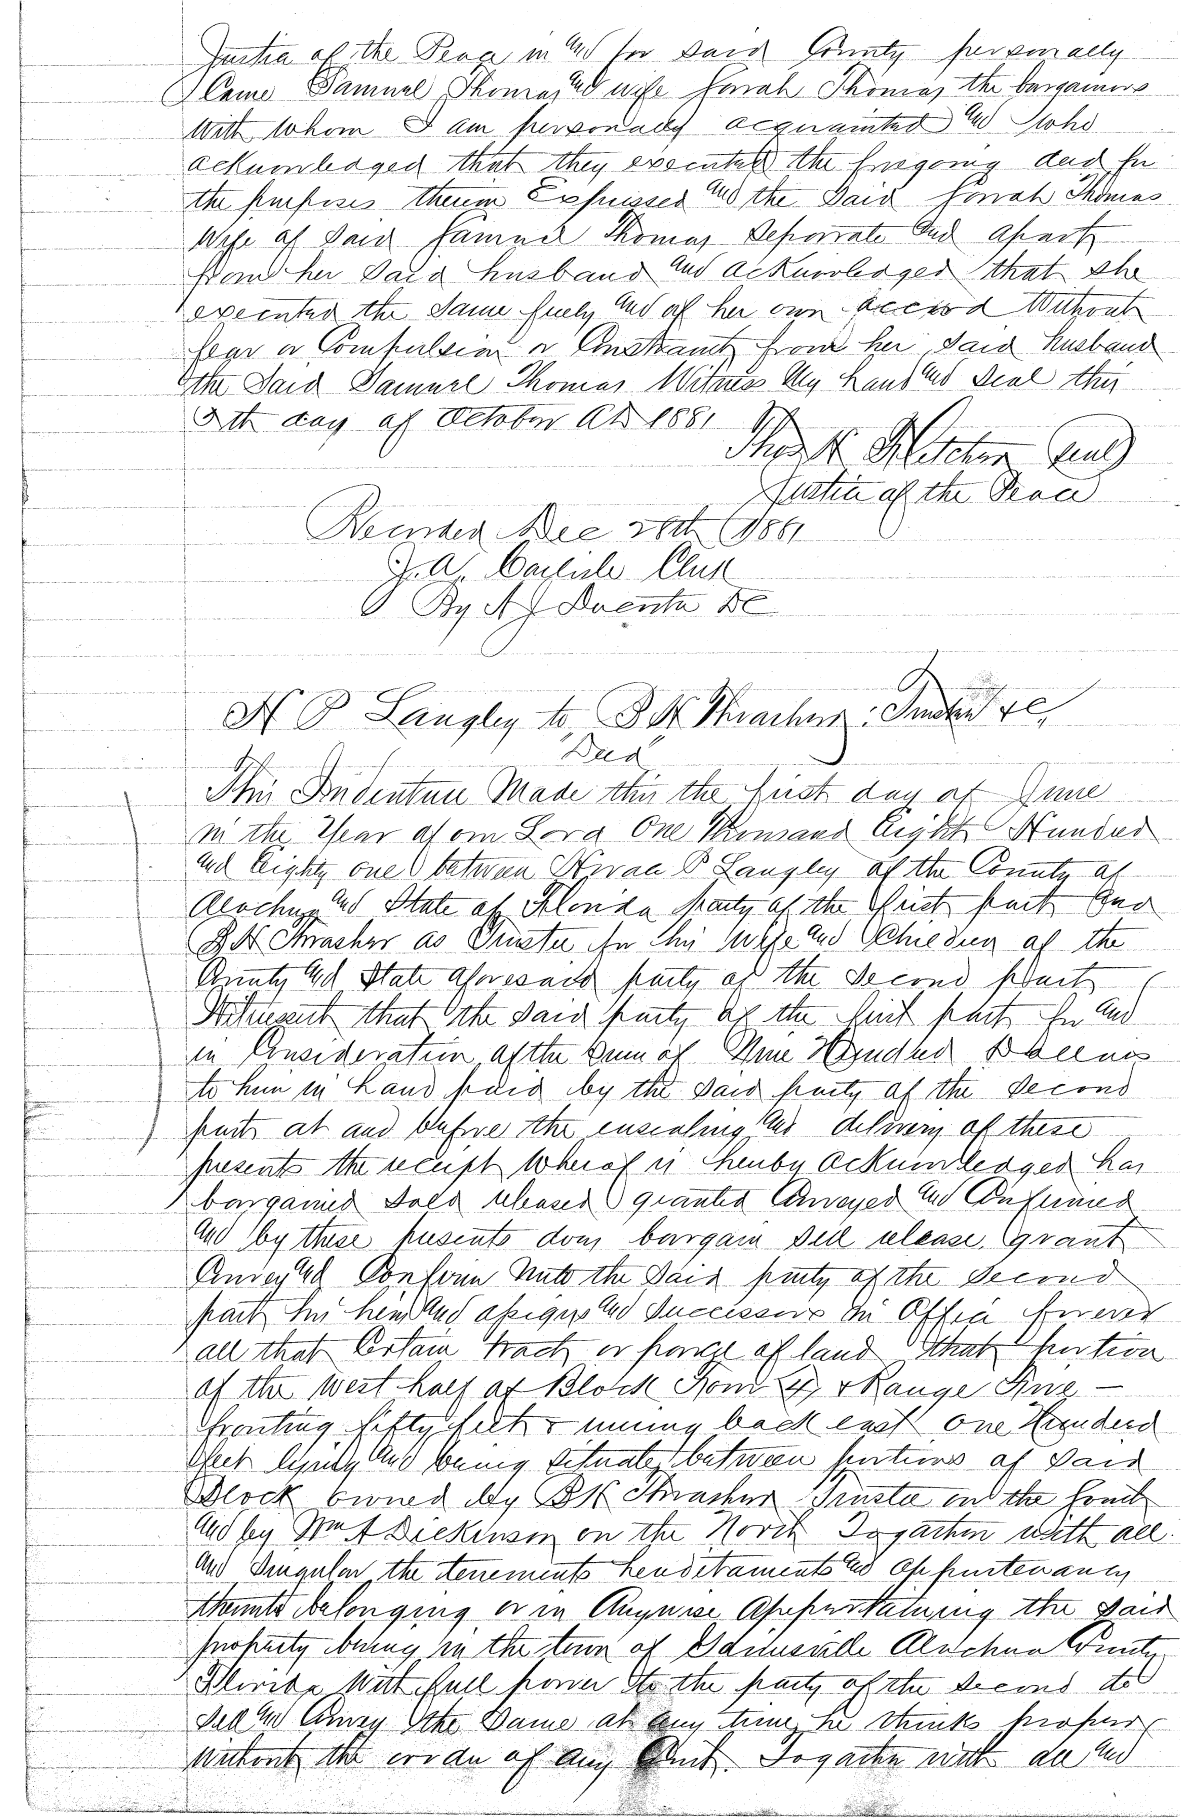 Justice of the Peace in and for said County personally
Came Samuel Thomas and wife Sarah Thomas the bargainors
with whom I am personally acquainted and who
acknowledged that they executed the foregoing deed for
the purposes therein Expressed and the Said Sarah Thomas
Wife of Said Samuel Thomas Separate and apart
from her Said husband and acknowledged that she
executed the Same freely and of her own accord Without
fear or Compulsion or Constraint from her Said husband
the Said Samuel Thomas Witness My hand and Seal this
5th day of October AD 1881
Thos H Fletcher (Seal)
Justice of the Peace
Recorded Dec 28th 1881
J. A. Carlisle Clerk
By A J DC
H P Langley to B H Thrasher: Trustee &c,
"Deed"
This Indenture Made this the first day of June
in the Year of our Lord One Thousand Eight Hundred
and Eighty one between P Langley of the County of
Alachua and State of Florida party of the first part and
B H Thrasher as Trustee for his Wife and Children of the
County and State aforesaid party of the second part
Witnesseth that the said party of the first part for and
in Consideration of the sum of Nine Hundred Dollars
to him in hand paid by the said party of the second
part at and before the ensealing and delivery of these
presents the receipt whereof is hereby acknowledged has
bargained sold released granted Conveyed and Confirmed
and by these presents does bargain sell release, grant
Convey and Confirm Unto the Said party of the second
part his heirs and assigns and Successors in Office forever
all that Certain tract or parcel of land that portion
of the west half of Block Four (4) & Range Five —
fronting fifty feet & running back east one Hundred
feet lying and being situate, between portions of said
Block owned by B H Thrasher Trustee on the South
and by Wm A Dickenson on the North Togather with all
and Singular the tenements hereditaments and appurtenances
thereunto belonging or in Anywise Appurtaining the said
property being in the town of Gainesville Alachua County
Florida With full power to the party of the second to
Sell and Convey the Same at any time, he thinks proper
without the order of any Court. Togather with all and